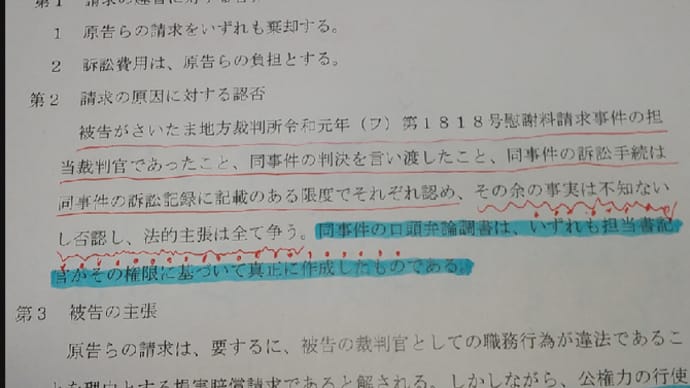 第1
1 原告らの請求をいずれも棄却する。
2 訴訟費用は、原告らの負担とする。
第2 請求の原因に対する認否
被告がさいたま地方裁判所令和元年(ワ)第1818号慰謝料請求事件の担
当裁判官であったこと、同事件の判決を言い渡したこと、同事件の訴訟手続は
同事件の訴訟記録に記載のある限度でそれぞれ認め、その余の事実は不知ない
し否認し、法的主張は全て争う。同事件の口頭弁論調書は、いずれも担当書記
官がその権限に基づいて真正に作成したものである。
第3 被告の主張
原告らの請求は、要するに、被告の裁判官としての職務行為が違法であるこ
とを理由とする損害賠償請求であると解される。しかしながら、公権力の行使